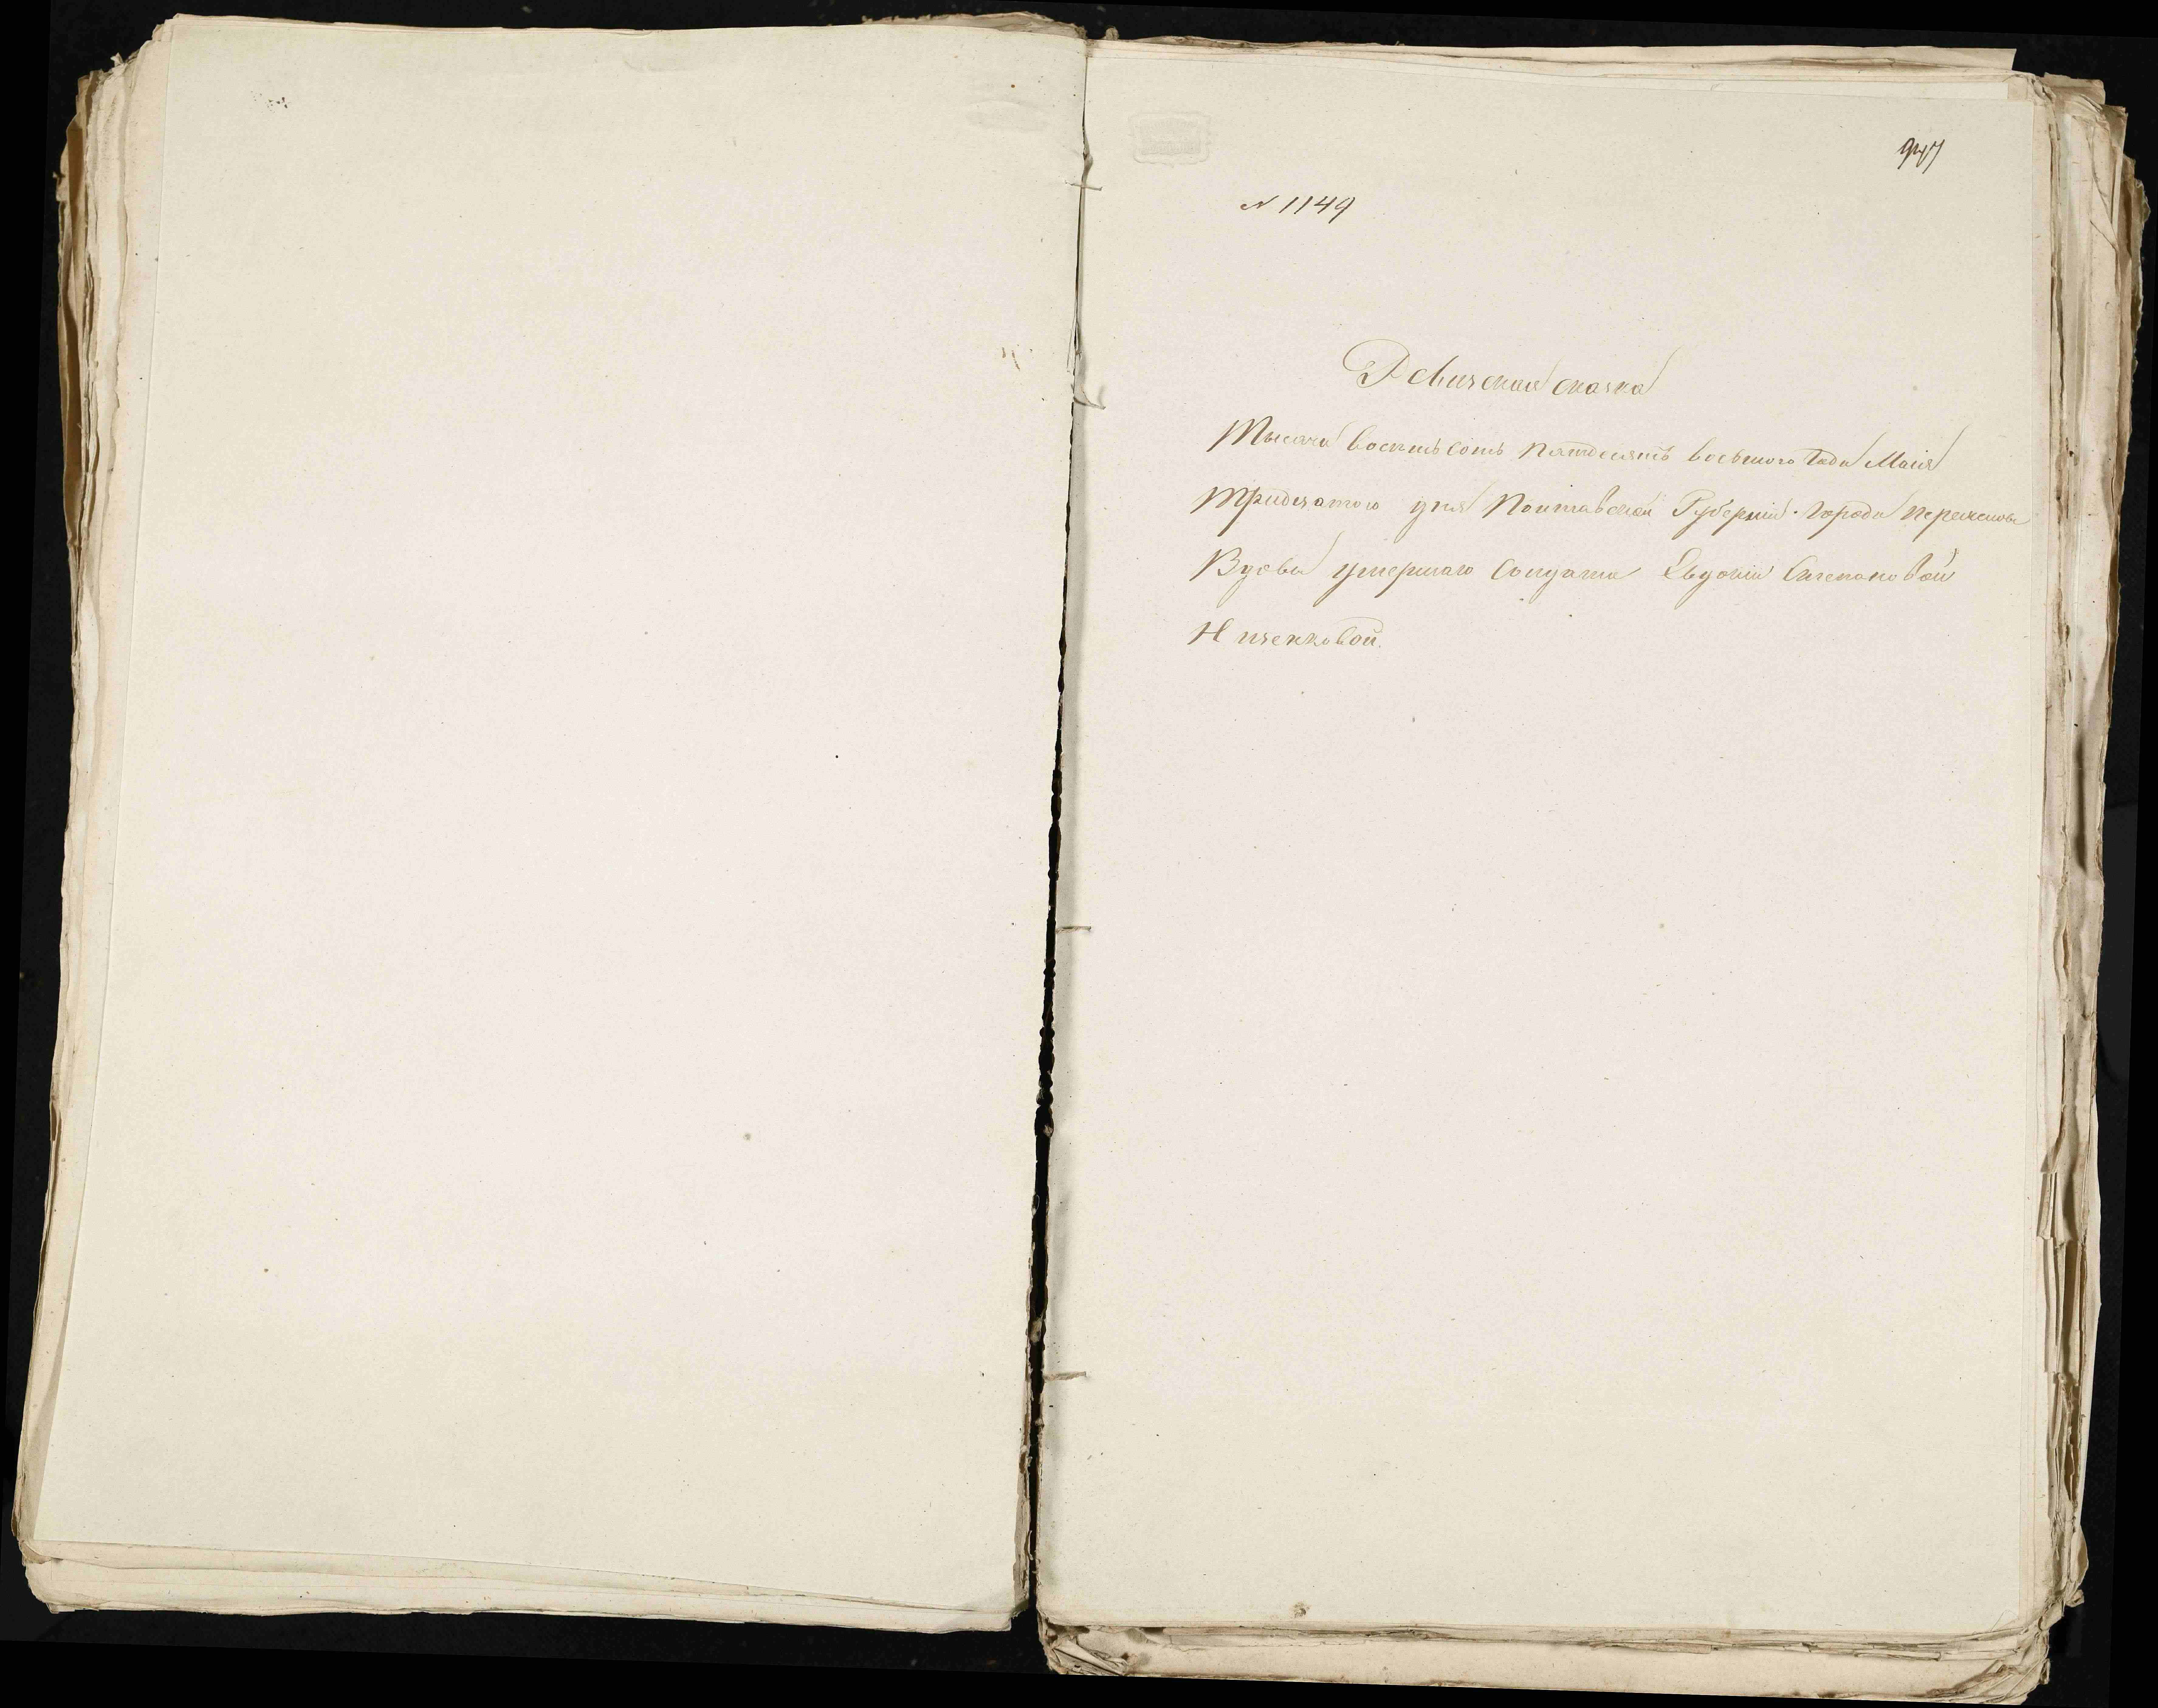 947
N 1149
Ревизская сказка
Тысяча восемь сотъ пятдесятъ восьмого года Маія
тридцатого дня Полтавской Губерніи города
Вдовы умершаго Солдата Евдокіи Степановой